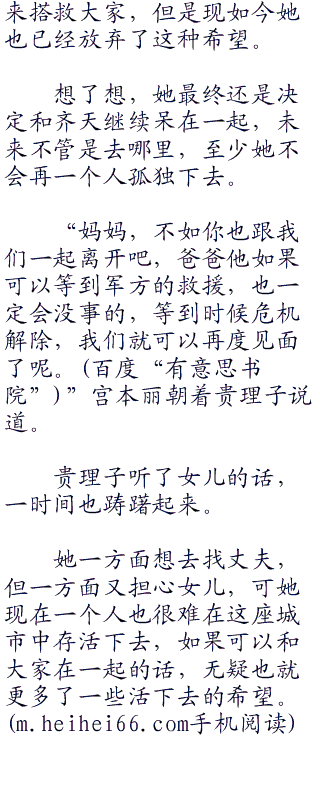 来搭救大家，但是现如今她
也已经放弃了这种希望。
想了想，她最终还是决
定和齐天继续呆在一起，未
来不管是去哪里，至少她不
会再一个人孤独下去。
“妈妈，不如你也跟我
们一起离开吧，爸爸他如果
可以等到军方的救援，也一
定会没事的，等到时候危机
解除，我们就可以再度见面
了呢。(百度“有意思书
院”)”宫本丽朝着贵理子说
道。
贵理子听了女儿的话，
一时间也踌躇起来。
她一方面想去找丈夫，
但一方面又担心女儿，可她
现在一个人也很难在这座城
市中存活下去，如果可以和
大家在一起的话，无疑也就
更多了一些活下去的希望。
(m.heihei66.com手机阅读)